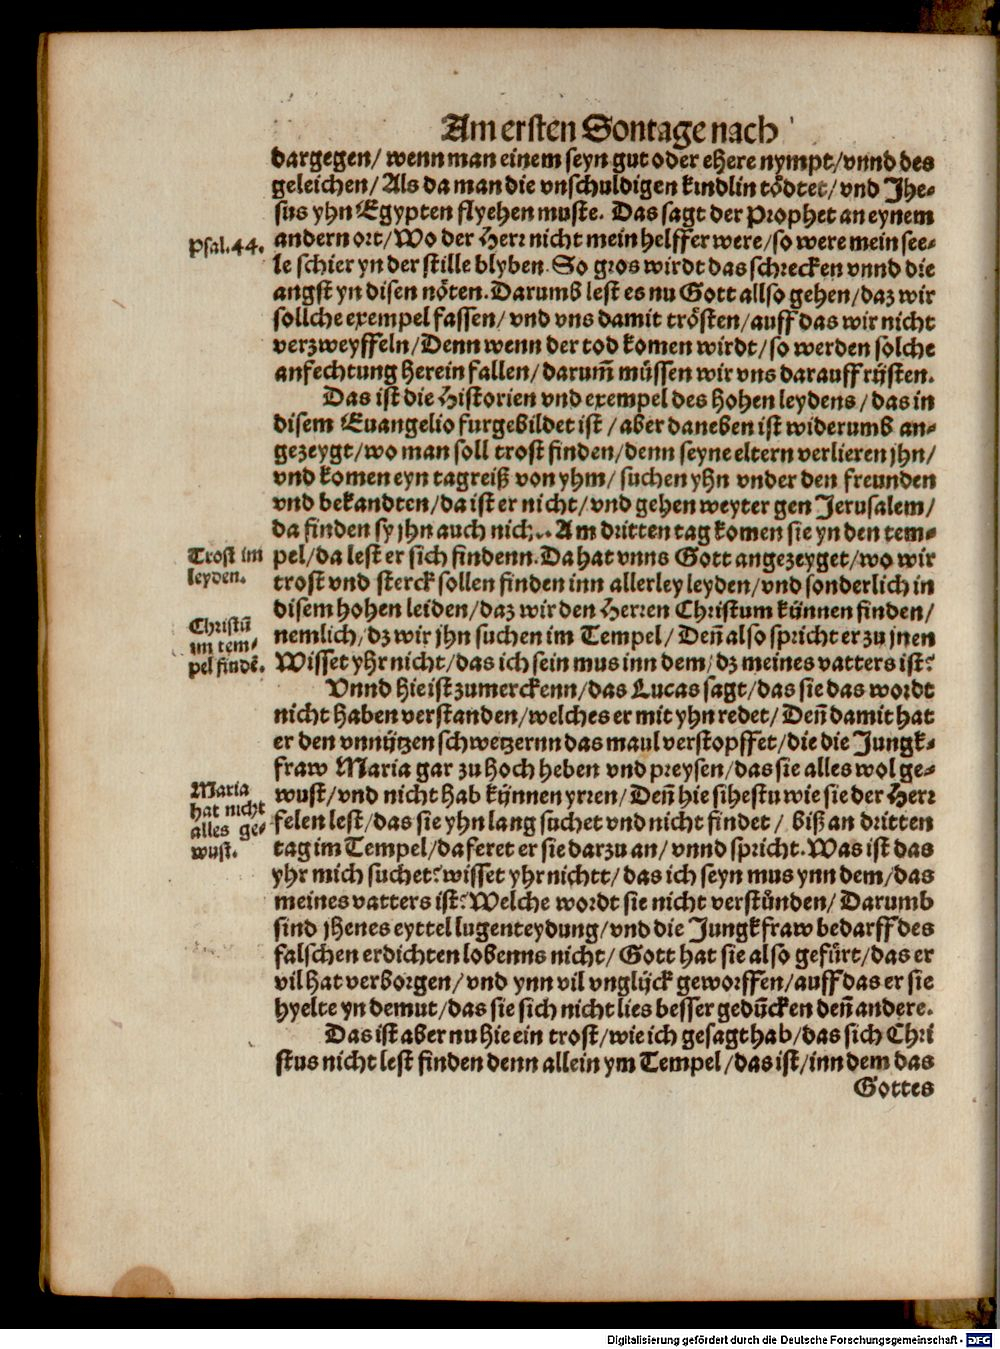 Am ersten Sontage nach
dargegen/ wenn man einem seyn gut oder ehere nympt/ vnnd des
geleichen/ Als da man die vnschuldigen kindlin tödtet/ vnd Jhe-
sus yhn Egypten flyehen muste. Das sagt der Prophet an eynem
Psal.44. andern ort/ Wo der Herr nicht mein helffer were/ so were mein see-
le schier yn der stille blyben. So gros wirdt das schrecken vnnd die
angst yn disen nöten. Darumb lest es nu Gott allso gehen/ daz wir
sollche exempel fassen/ vnd vns damit trösten/ auff das wir nicht
verzweyffeln/ Denn wenn der tod komen wirdt/ so werden solche
anfechtung herein fallen/ darum̃ müssen wir vns darauff rüsten.
Das ist die Historien vnd exempel des hohen leydens/ das in
disem Euangelio furgebildet ist/ aber daneben ist widerumb an-
gezeygt/ wo man soll trost finden/ denn seyne eltern verlieren jhn/
vnd komen eyn tagreiß von yhm/ suchen yhn vnder den freunden
vnd bekandten/ da ist er nicht/ vnd gehen weyter gen Jerusalem/
da finden sy jhn auch nich. Am dritten tag komen sie yn den tem-
Trost im
leyden.
pel/ da lest er sich findenn. Da hat vnns Gott angezeyget/ wo wir
trost vnd sterck sollen finden inn allerley leyden/ vnd sonderlich in
disem hohen leiden/ daz wir den Herren Christum künnen finden/
Christũ
im tem-
pel findẽ.
nemlich/ dz wir jhn suchen im Tempel/ Deñ also spricht er zu jnen
Wisset yhr nicht/ das ich sein mus inn dem/ dz meines vatters ist?
Vnnd hie ist zumerckenn/ das Lucas sagt/ das sie das wordt
nicht haben verstanden/ welches er mit yhn redet/ Deñ damit hat
er den vnnützen schwetzernn das maul verstopffet/ die die Jungk-
fraw Maria gar zu hoch heben vnd preysen/ das sie alles wol ge-
Maria
hat nicht
alles ge-
wust.
wust/ vnd nicht hab künnen yrren/ Deñ hie sihestu wie sie der Herr
felen lest/ das sie yhn lang suchet vnd nicht findet/ biß an dritten
tag im Tempel/ da feret er sie darzu an/ vnnd spricht. Was ist das
yhr mich suchet? wisset yhr nichtt/ das ich seyn mus ynn dem/ das
meines vatters ist? Welche wordt sie nicht verstůnden/ Darumb
sind jhenes eyttel lugenteydung/ vnd die Jungkfraw bedarff des
falschen erdichten lobenns nicht/ Gott hat sie also gefürt/ das er
vil hat verborgen/ vnd ynn vil vnglück geworffen/ auff das er sie
hyelte yn demut/ das sie sich nicht lies besser gedũcken deñ andere.
Das ist aber nu hie ein trost/ wie ich gesagt hab/ das sich Chri
stus nicht lest finden denn allein ym Tempel/ das ist/ inn dem das
Gottes
Digitalisierung gefördert durch die Deutsche Forschungsgemeinschaft - DFG